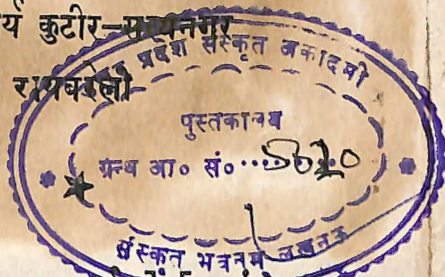 र्य कुटीर-सत्यनगर
रायबरेली
प्रदेश संस्कृत अकादमी
पुस्तकालय
ग्रन्थ आ० सं०....5820
संस्कृत भवनम् लखनऊ